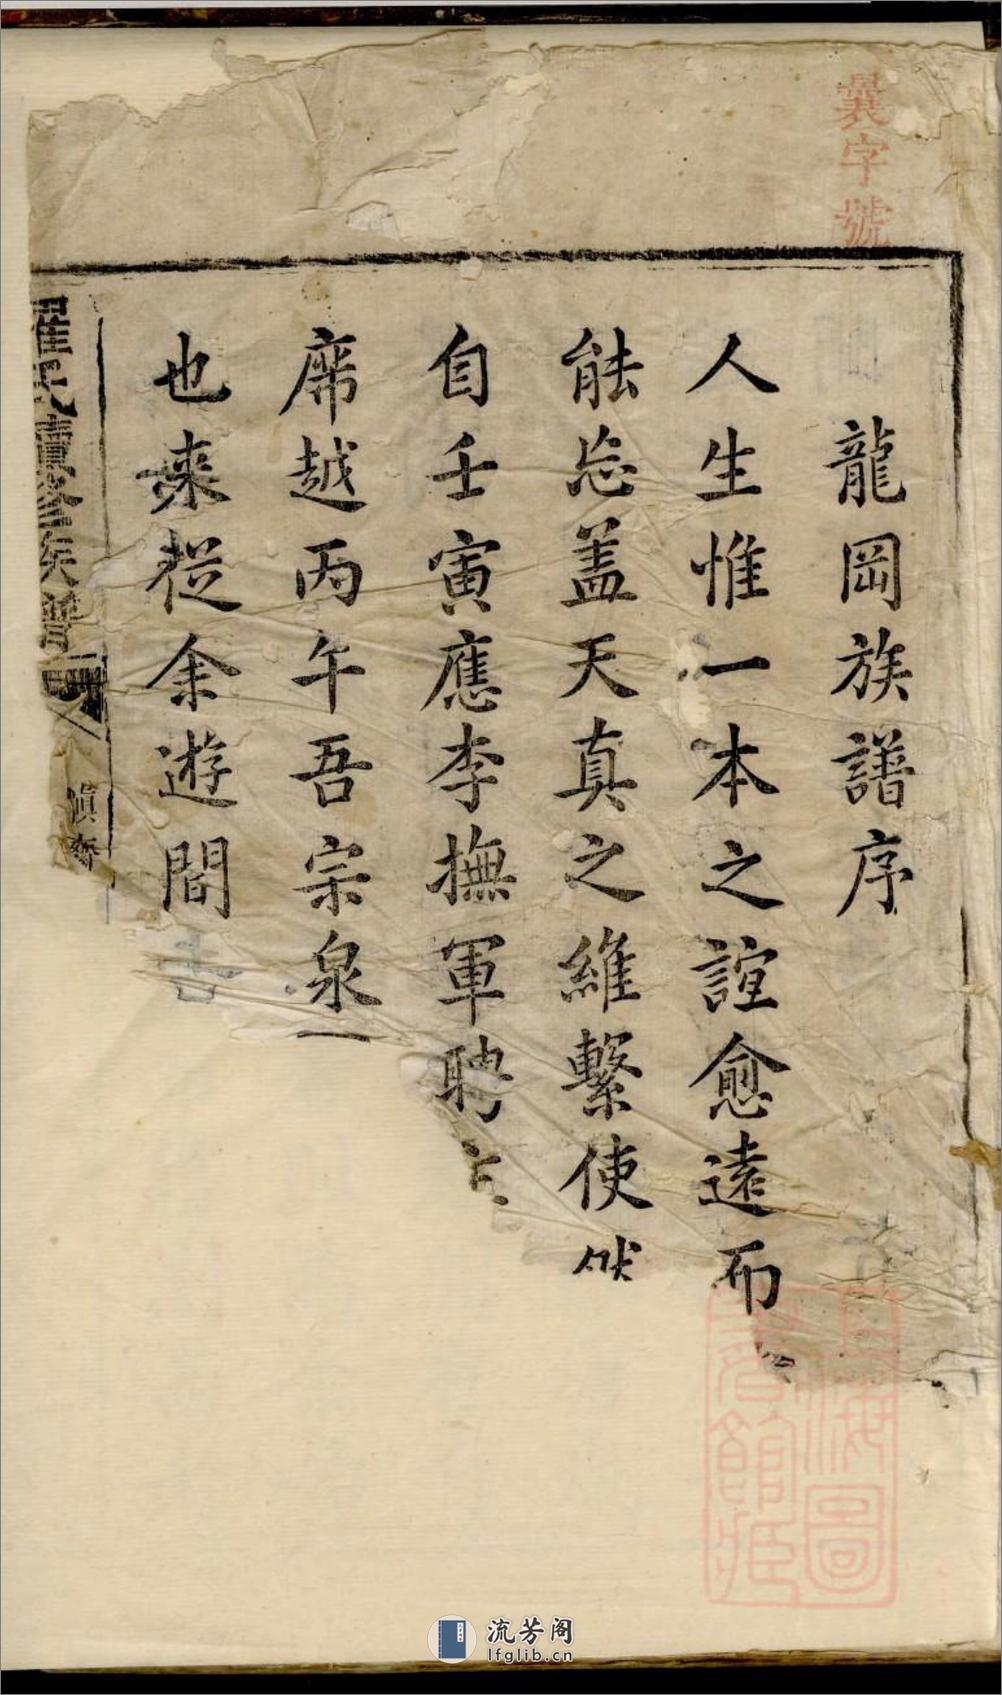 曩字號
龍岡族譜序
人生惟一本之誼愈遠而
能忘蓋天真之維繫使然
自壬寅應李撫軍聘
席越丙午吾宗泉一
也来從余遊間
羅氏重修族譜
上海圖書館藏
流芳阁
lfglib.cn